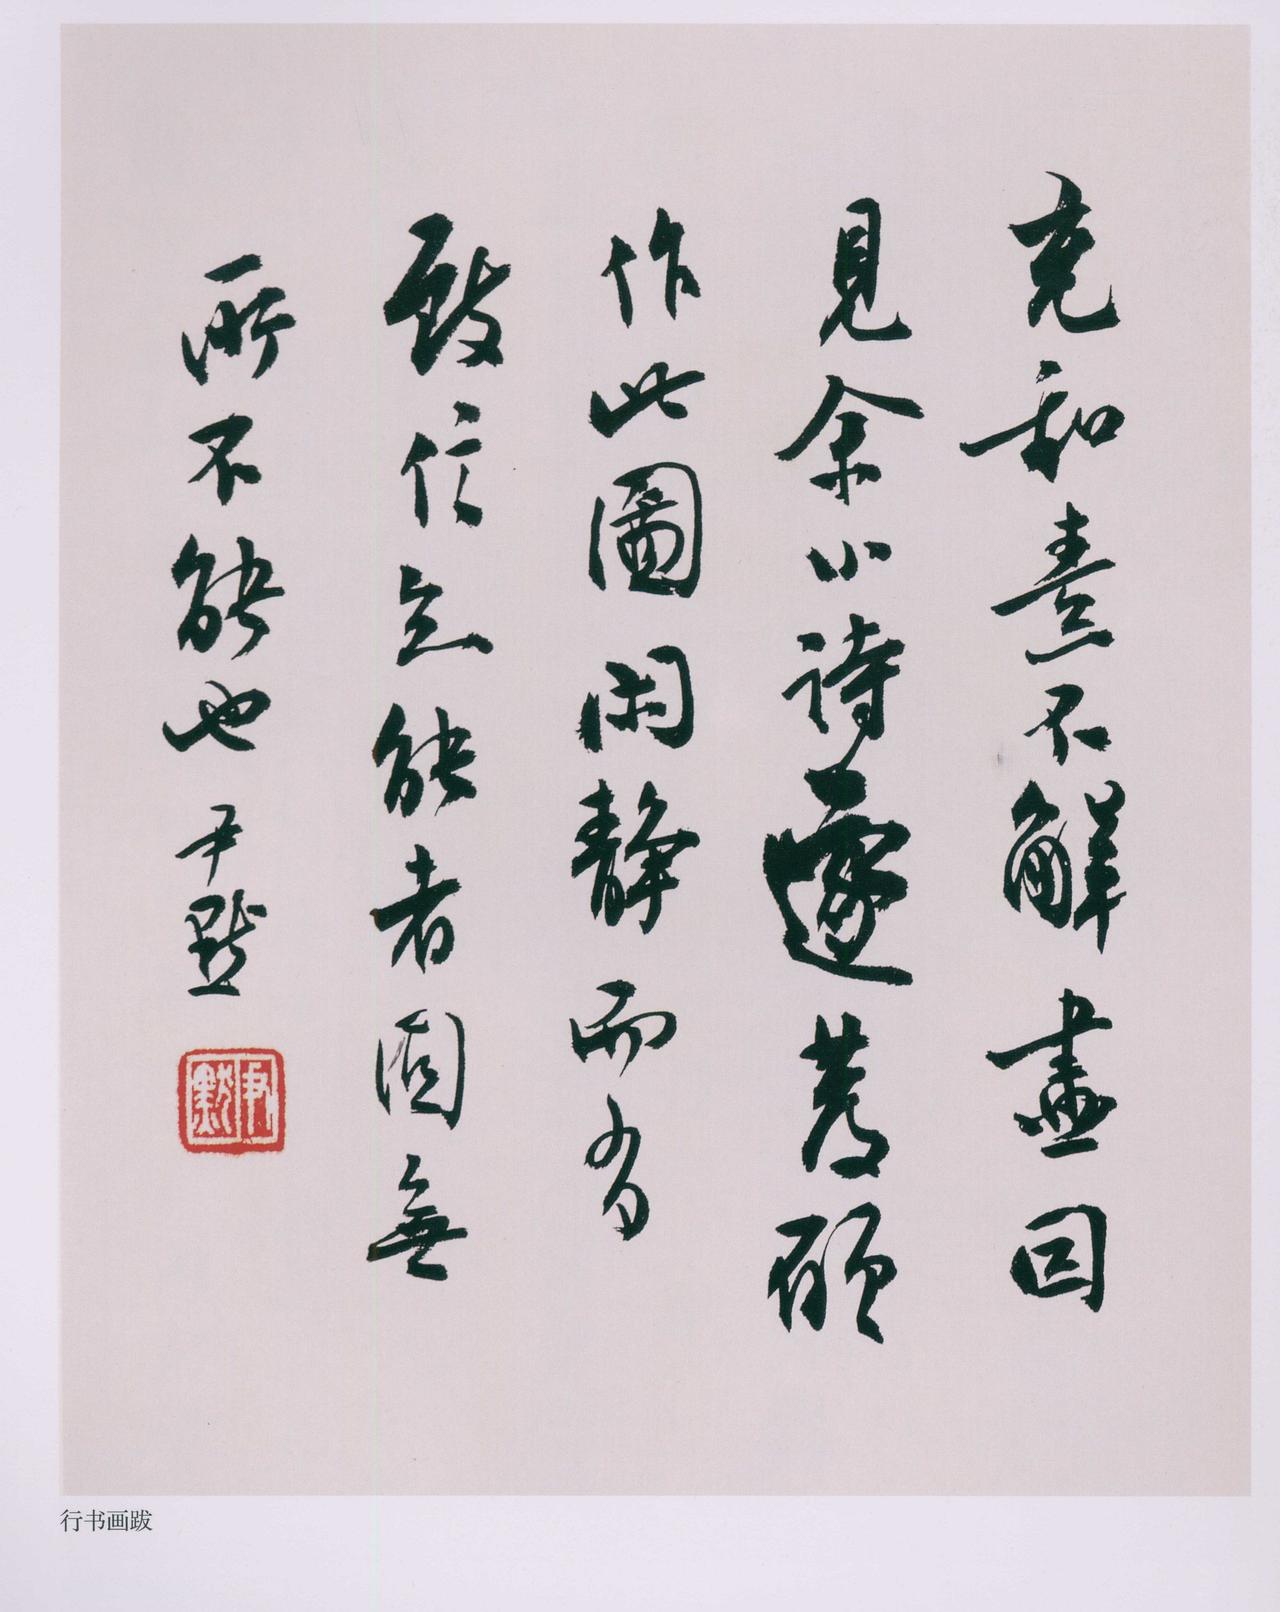 充和素不解畫因
見余小詩遂發願
作此圖閑靜而有
致信能者固無
所不能也 尹默
尹默
行书画跋